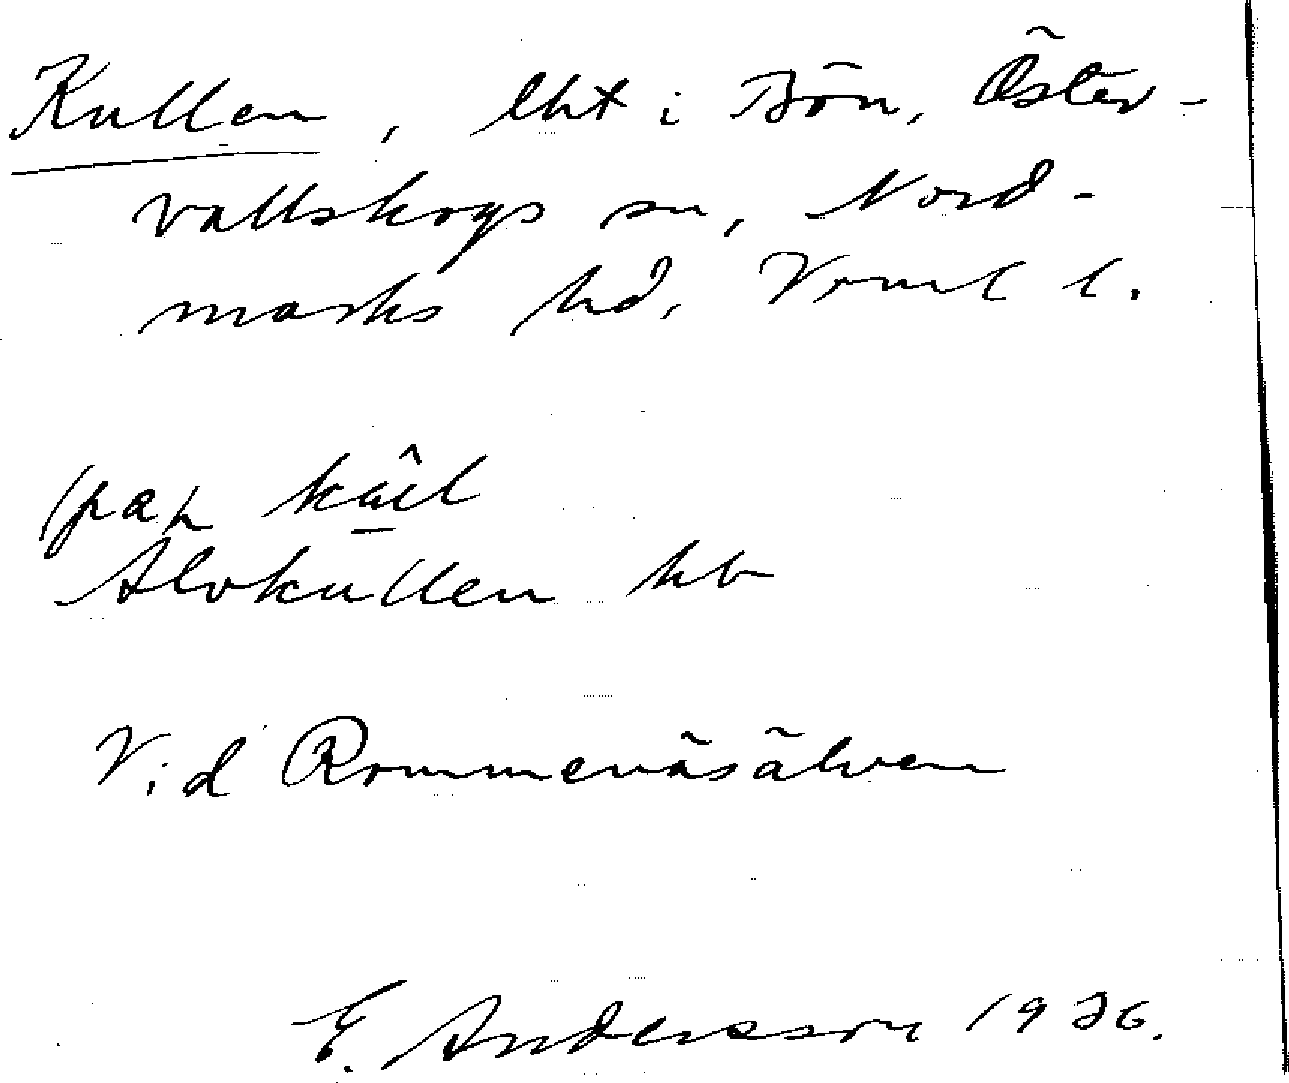 Kullen, lht i Bön, Öster-
vallskogs sn, Nord-
marks hd, Vrml l.
Alvkullen kb
Vid Rommenäsälven
E. Andersson 1926.